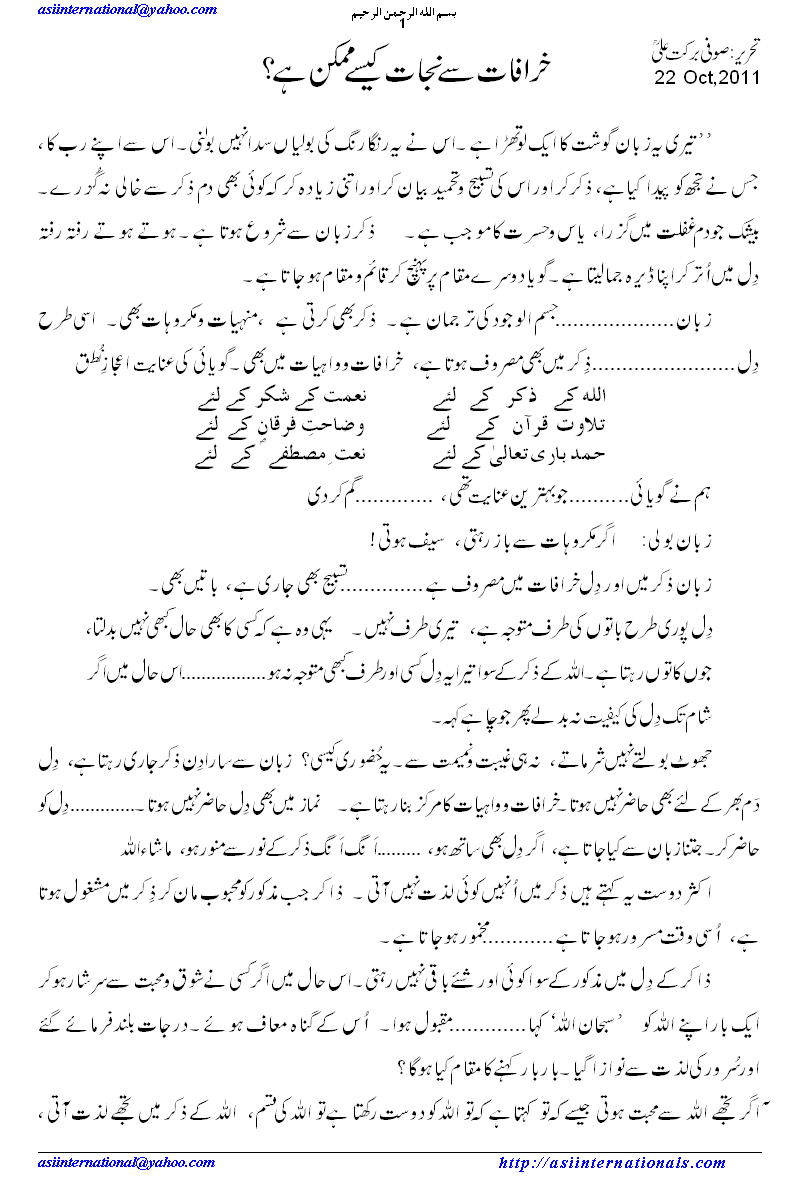 asiinternational@yahoo.com
بسم الله الرحمن الرحیم
1
تحریر: صوفی برکت علیؒ
22 Oct,2011
خرافات سے نجات کیسے ممکن ہے؟
’’تیری یہ زبان گوشت کا ایک لوتھڑا ہے۔ اس نے یہ رنگا رنگ کی بولیاں سدا نہیں بولنی۔ اس سے اپنے رب کا،
جس نے تجھ کو پیدا کیا ہے، ذکر کر اور اس کی تسبیح و تحمید بیان کر اور اتنی زیادہ کر کہ کوئی بھی دم ذکر سے خالی نہ گُزرے۔
بیشک جو دم غفلت میں گزرا، یاس و حسرت کا موجب ہے۔ ذکر زبان سے شروع ہوتا ہے۔ ہوتے ہوتے رفتہ رفتہ
دِل میں اُتر کر اپنا ڈیرہ جما لیتا ہے۔ گویا دوسرے مقام پر پہنچ کر قائم و مقام ہو جاتا ہے۔
زبان....................جسم الوجود کی ترجمان ہے۔ ذکر بھی کرتی ہے ،منہیات و مکروہات بھی۔ اسی طرح
دِل........................ذِکر میں بھی مصروف ہوتا ہے، خرافات و واہیات میں بھی۔ گویائی کی عنایت اعجازِ نُطق
الله کے ذکر کے لئے نعمت کے شکر کے لئے
تلاوت قرآن کے لئے وضاحتِ فرقان کے لئے
حمد باری تعالیٰ کے لئے نعتِ مصطفےؐ کے لئے
ہم نے گویائی..........جو بہترین عنایت تھی، .............گم کر دی
زبان بولی: اگر مکروہات سے باز رہتی، سیف ہوتی!
زبان ذکر میں اور دِل خرافات میں مصروف ہے..............تسبیح بھی جاری ہے، باتیں بھی۔
دِل پوری طرح باتوں کی طرف متوجہ ہے، تیری طرف نہیں۔ یہی وہ ہے کہ کسی کا بھی حال کبھی نہیں بدلتا،
جوں کا توں رہتا ہے۔ اللہ کے ذکر کے سوا تیرا یہ دِل کسی اور طرف کبھی متوجہ نہ ہو.................اس حال میں اگر
شام تک دِل کی کیفیت نہ بدلے پھر جو چاہے کہہ۔
جھوٹ بولتے نہیں شرماتے، نہ ہی غیبت و نمیمت سے۔ یہ حُضوری کیسی؟ زبان سے سارا دِن ذکر جاری رہتا ہے، دِل
دَم بھر کے لئے بھی حاضر نہیں ہوتا۔ خرافات و واہیات کا مرکز بنا رہتا ہے۔ نماز میں بھی دِل حاضر نہیں ہوتا۔.............دِل کو
حاضر کر۔ جتنا زبان سے کیا جاتا ہے، اگر دِل بھی ساتھ ہو، .........اَنگ اَنگ ذکر کے نور سے منور ہو، ماشاءاللہ
اکثر دوست یہ کہتے ہیں ذکر میں اُنہیں کوئی لذت نہیں آتی۔ ذاکر جب مذکور کو محبوب مان کر ذِکر میں مشغول ہوتا
ہے، اُسی وقت مسرور ہو جاتا ہے............مخمور ہو جاتا ہے۔
ذاکر کے دِل میں مذکور کے سوا کوئی اور شئے باقی نہیں رہتی۔ اس حال میں اگر کسی نے شوق و محبت سے سرشار ہو کر
ایک بار اپنے اللہ کو ’سبحان اللہ‘ کہا.............مقبول ہوا۔ اُس کے گناہ معاف ہوئے۔ درجات بلند فرمائے گئے
اور سُرور کی لذت سے نوازا گیا۔ بار بار کہنے کا مقام کیا ہوگا؟
اگر تجھے اللہ سے محبت ہوتی جیسے کہ تو کہتا ہے کہ تو اللہ کو دوست رکھتا ہے تو اللہ کی قسم، اللہ کے ذکر میں تجھے لذت آتی،
asiinternational@yahoo.com
http://asiinternationals.com